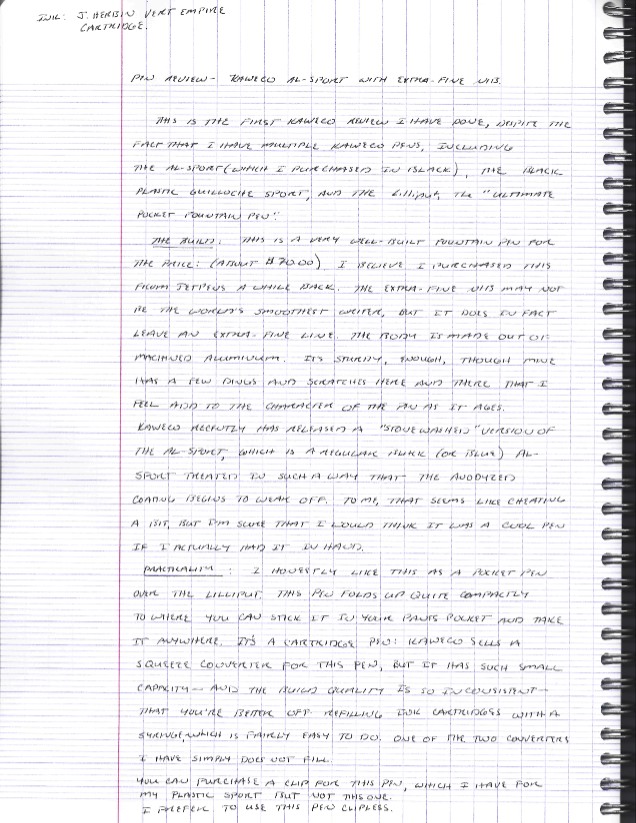 INK: J. HERBIN VERT EMPIRE
CARTRIDGE.
PEN REVIEW - KAWECO AL-SPORT WITH EXTRA-FINE NIB.
THIS IS THE FIRST KAWECO REVIEW I HAVE DONE, DESPITE THE
FACT THAT I HAVE MULTIPLE KAWECO PENS, INCLUDING
THE AL-SPORT (WHICH I PURCHASED IN BLACK), THE BLACK
PLASTIC GUILLOCHE SPORT, AND THE Lilliput, THE "ULTIMATE
POCKET FOUNTAIN PEN".
THE BUILD: THIS IS A VERY WELL-BUILT FOUNTAIN PEN FOR
THE PRICE: (ABOUT $70.00) I BELIEVE I PURCHASED THIS
FROM JETPENS A WHILE BACK. THE EXTRA-FINE NIB MAY NOT
BE THE WORLD'S SMOOTHEST WRITER, BUT IT DOES IN FACT
LEAVE AN EXTRA-FINE LINE. THE BODY IS MADE OUT OF
MACHINED ALUMINIUM. IT'S STURDY, ENOUGH, THOUGH MINE
HAS A FEW DINGS AND SCRATCHES HERE AND THERE THAT I
FEEL ADD TO THE CHARACTER OF THE PEN AS IT AGES.
KAWECO RECENTLY HAS RELEASED A "STONEWASHED" VERSION OF
THE AL-SPORT, WHICH IS A REGULAR BLACK (OR BLUE) AL-
SPORT TREATED IN SUCH A WAY THAT THE ANODYZED
COATING BEGINS TO WEAR OFF. TO ME, THAT SEEMS LIKE CHEATING
A BIT, BUT I'M SURE THAT I WOULD THINK IT WAS A COOL PEN
IF I ACTUALLY HAD IT IN HAND.
PRACTICALITY: I HONESTLY LIKE THIS AS A POCKET PEN
OVER THE LILLIPUT. THIS PEN FOLDS UP QUITE COMPACTLY
TO WHERE YOU CAN STICK IT IN YOUR PANTS POCKET AND TAKE
IT ANYWHERE. IT'S A CARTRIDGE PEN: KAWECO SELLS A
SQUEEZE CONVERTER FOR THIS PEN, BUT IT HAS SUCH SMALL
CAPACITY - AND THE BUILD QUALITY IS SO INCONSISTANT -
THAT YOU'RE BETTER OFF REFILLING INK CARTRIDGES WITH A
SYRINGE, WHICH IS FAIRLY EASY TO DO. ONE OF THE TWO CONVERTERS
I HAVE SIMPLY DOES NOT FILL.
YOU CAN PURCHASE A CLIP FOR THIS PEN, WHICH I HAVE FOR
MY PLASTIC SPORT BUT NOT THIS ONE.
I PREFER TO USE THIS PEN CLIPLESS.